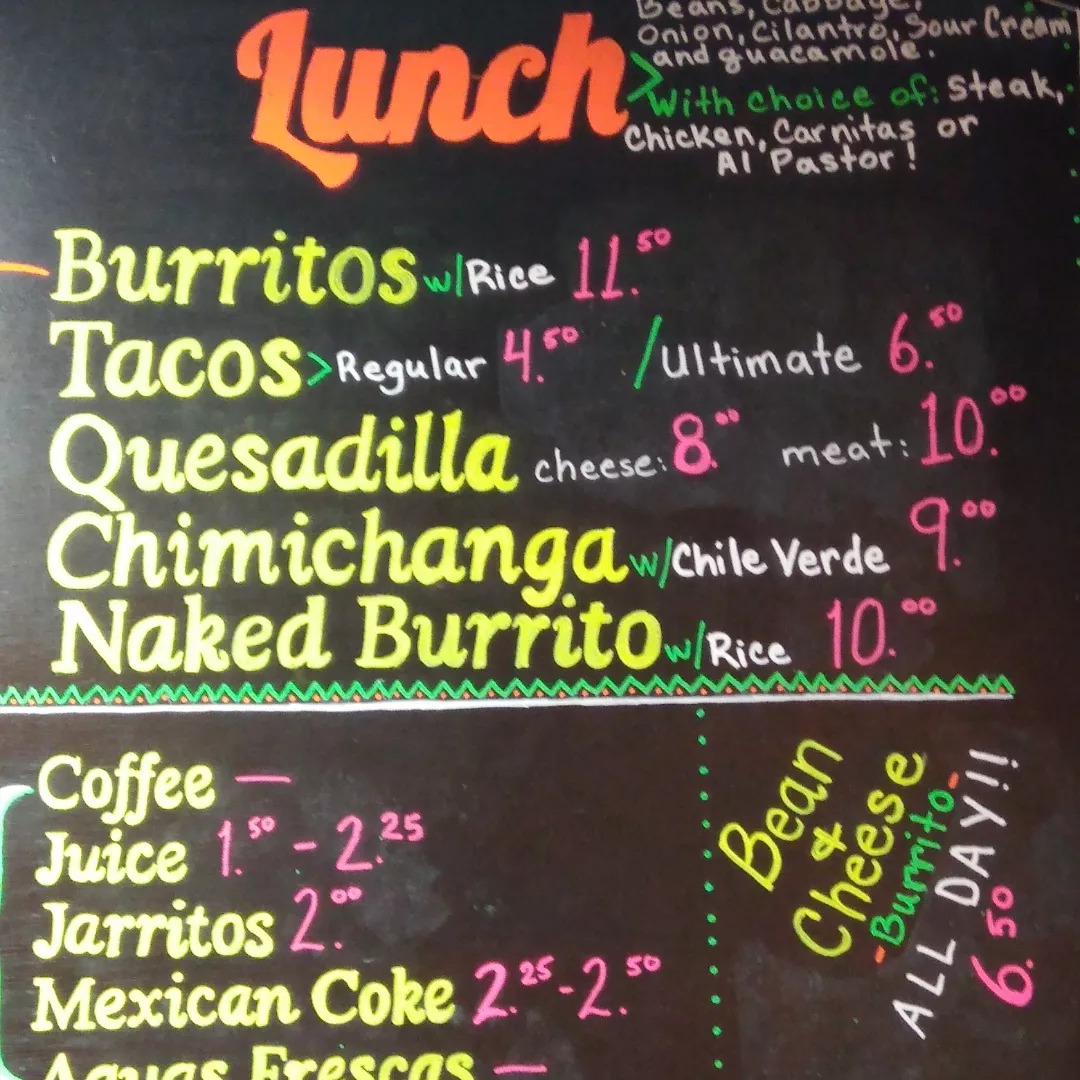 Beans, Cabbage,
Onion, Cilantro, Sour Cream
and guacamole.
Lunch
> With choice of: Steak,
Chicken, Carnitas or
Al Pastor!
Burritos w/Rice 11.50
Tacos > Regular 4.50 / Ultimate 6.50
Quesadilla cheese: 8.00 meat: 10.00
Chimichanga w/Chile Verde 9.00
Naked Burrito w/Rice 10.00
Coffee —
Juice 1.50 - 2.25
Jarritos 2.00
Mexican Coke 2.25 - 2.50
Aguas Frescas —
Bean
&
Cheese
-Burrito-
ALL DAY!!
6.50